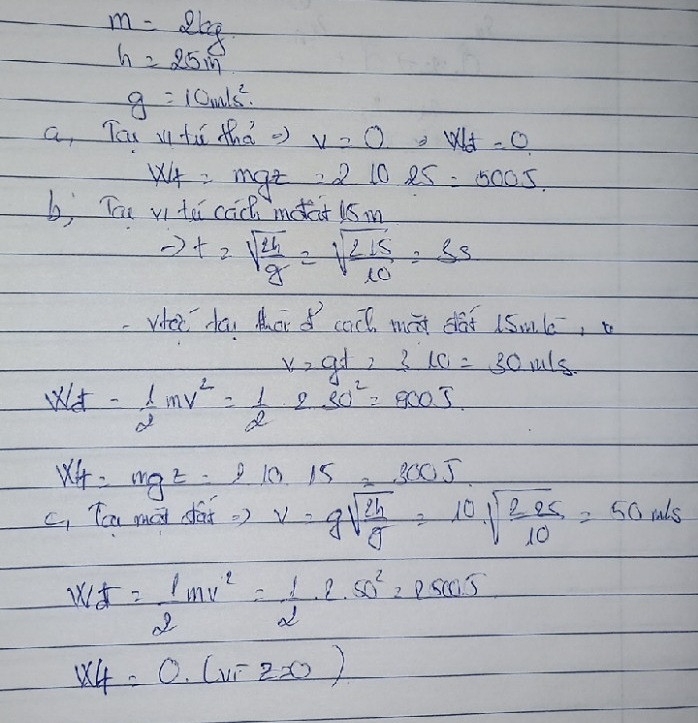 m = 2kg
h = 25m
g = 10m/s².
a, Tại vị trí thả => v = 0 => Wđ = 0.
Wt = mgz = 2 10 25 = 500J.
b, Tại vị trí cách mđất 15m
=> t = √(2h/g) = √(2 15/10) = 3s
- Vtốc tại thời đ' cách mặt đất 15m là,
v = gt = 3 10 = 30 m/s.
Wđ = 1/2 mv² = 1/2 . 2 30² = 900J.
Wt = mgz = 2 10. 15 = 300J.
c, Tại mặt đất => v = g√(2h/g) = 10.√(2 25/10) = 50 m/s
Wđ = 1/2 mv² = 1/2 . 2 . 50² = 2500J
Wt = 0. (vì z=0)